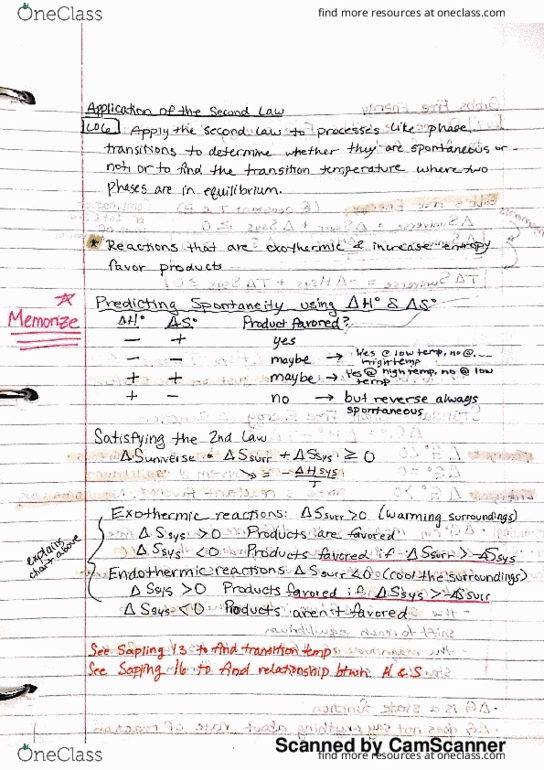 OneClass
find more resources at oneclass.com
Application of the Second Law
LO6 Apply the second law to processes like phase
transitions to determine whether they are spontaneous or
not, or to find the transition temperature where two
phases are in equilibrium.
* Reactions that are exothermic & increase entropy
favor products
Predicting Spontaneity using ΔH° & ΔS°
Memorize
ΔH° ΔS° Product favored?
− + yes
− − maybe → Yes @ low temp, no @
high temp
+ + maybe → Yes @ high temp, no @ low
temp
+ − no → but reverse always
spontaneous
Satisfying the 2nd Law
ΔSuniverse = ΔSsurr + ΔSsys ≥ 0
↘ = -ΔHsys/T
Exothermic reactions: ΔSsurr >0 (warming surroundings)
ΔSsys >0 Products are favored
ΔSsys <0 Products favored if ΔSsurr > -ΔSsys
explains
chart above
Endothermic reactions ΔSsurr <0 (cool the surroundings)
ΔSsys >0 Products favored if ΔSsys > -ΔSsurr
ΔSsys <0 Products aren't favored
See Sapling 13 to find transition temp
See Sapling 16 to find relationship btwn H & S
Scanned by CamScanner
OneClass
find more resources at oneclass.com